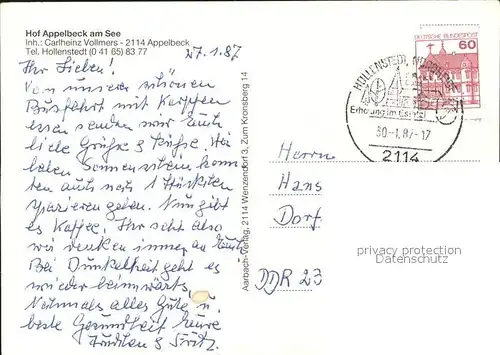 Hof Appelbeck am See
Inh.: Carlheinz Vollmers - 2114 Appelbeck
Tel. Hollenstedt (0 41 65) 83 77
27.1.87
Ihr Lieben!
Von unserer schönen
Busfahrt mit Karpfen
essen senden wir Euch
liebe Grüße & Küsse. Wir
haben Sonnenschein, konn
ten auch noch 1 Stückchen
spazieren gehen. Nun gibt
es Kaffee. Ihr seht also
wir denken immer an Euch.
Bei Dunkelheit geht es
wieder heimwärts.
Nochmals alles Gute u.
beste Gesundheit Eure
& Fritz.
Aarbach-Verlag, 2114 Wenzendorf 3, Zum Kronsberg 14
DEUTSCHE BUNDESPOST
60
HOLLENSTEDT, NORDHEIDE
Erholung im Estetal
30-1.87-17
2114
Herrn
Hans
Dorf
DDR 23
privacy protection
Datenschutz